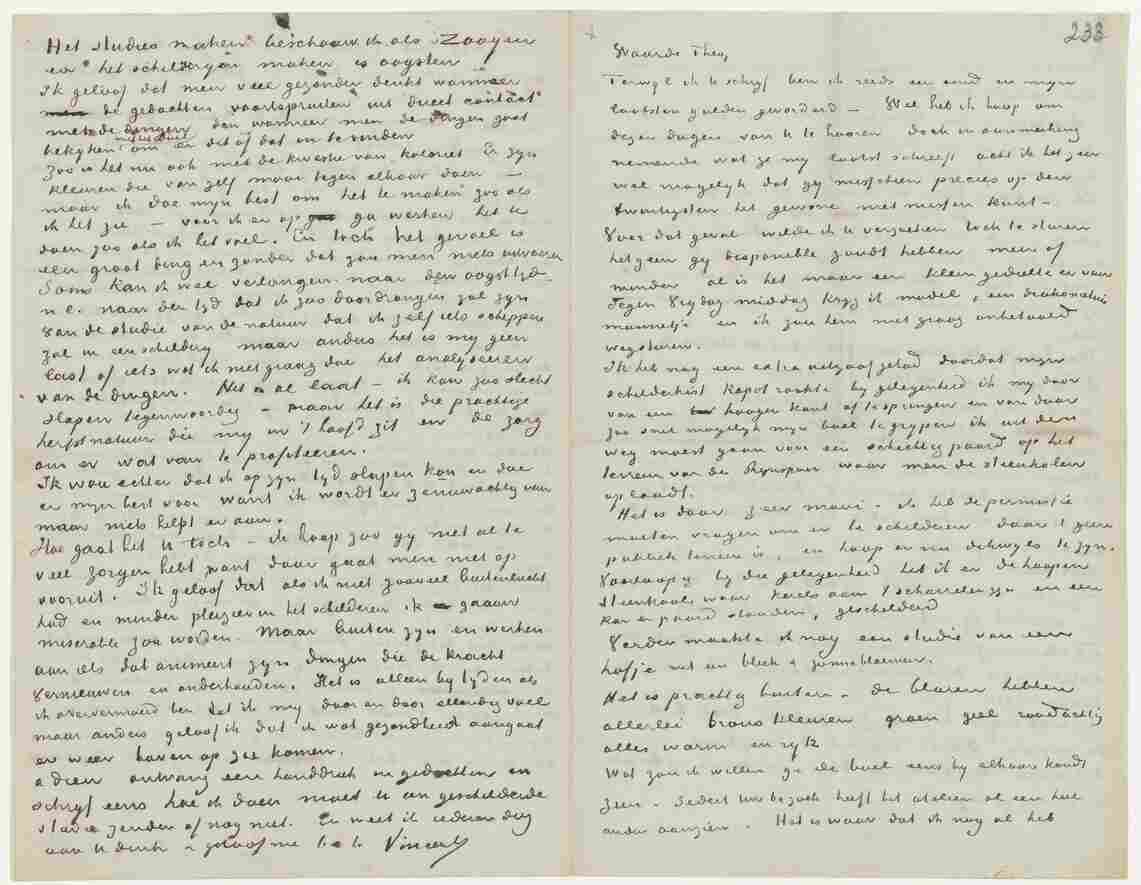 Het studies maken beschouw ik als Zaayen
en het schilderyen maken is oogsten
Ik geloof dat men veel gezonder denkt wanneer
de gedachten voortspruiten uit direct contact
met de dingen dan wanneer men de dingen gaat
bekyken met het doel om er dit of dat in te vinden
Zoo is het nu ook met de kwestie van koloriet Er zyn
kleuren die van zelf mooi tegen elkaar doen –
maar ik doe myn best om het te maken zoo als
ik het zie – voor ik er op ga werken het te
doen zoo als ik het voel. En toch het gevoel is
een groot ding en zonder dat zou men niets uitvoeren
Soms kan ik wel verlangen naar den oogsttyd –
n.l. naar den tyd dat ik zoo doordrongen zal zyn
van de studie van de natuur dat ik zelf iets scheppen
zal in een schildery maar anders het is my geen
last of iets wat ik niet graag doe het analyseeren
van de dingen. Het is al laat – ik kan zoo slecht
slapen tegenwoordig – maar het is die prachtige
herfstnatuur die my in 't hoofd zit en de zorg
om er wat van te profiteeren.
Ik wou echter dat ik op zyn tyd slapen kon en doe
er myn best voor want ik wordt er zenuwachtig van
maar niets helpt er aan.
Hoe gaat het U toch – ik hoop zoo gy niet al te
veel zorgen hebt want daar gaat men niet op
vooruit. Ik geloof dat als ik niet zooveel buitenlucht
had en minder pleizier in het schilderen ik gaauw
miserable zou worden. Maar buiten zyn en werken
aan iets dat animeert zyn dingen die de kracht
vernieuwen en onderhouden. Het is alleen by tyden als
ik oververmoeid ben dat ik my door en door ellendig voel
maar anders geloof ik dat ik wat gezondheid aangaat
er weer boven op zal komen.
adieu ontvang een handdruk in gedachten en
schryf eens hoe ik doen moet U een geschilderde
studie zenden of nog niet. En weet ik iederen dag
aan U denk & geloof me t. à t. Vincent
238
Waarde Theo,
Terwyl ik U schryf ben ik reeds een eind en myn
laatsten gulden gevorderd – Wel heb ik hoop om
dezer dagen van U te hooren doch in aanmerking
nemende wat ge my laatst schreeft acht ik het zeer
wel mogelyk dat gy misschien precies op den
twintigsten het gewone niet missen kunt –
Voor dat geval wilde ik U verzoeken toch te sturen
hetgeen gy disponible zoudt hebben meer of
minder al is het maar een klein gedeelte er van
Tegen Vrydag middag kryg ik model, een diakonaties
mannetje en ik zou hem niet graag onbetaald
wegsturen.
Ik heb nog een extra uitgaaf gehad doordat myn
schilderkist kapot raakte by gelegenheid ik my door
van een hoogen kant af te springen en van daar
zoo snel mogelyk myn boel te grypen ik uit den
weg moest gaan voor een schichtig paard op het
terrein van de Rynspoor waar men de steenkolen
oplaadt.
Het is daar zeer mooi – ik heb de permissie
moeten vragen om er te schilderen daar 't geen
publiek terrein is, en hoop er nu dikwyls te zyn.
Voorloopig by die gelegenheid heb ik er de hoopen
steenkool, waar kerels aan 't scharrelen zyn en een
kar en paard stonden, geschilderd
Verder maakte ik nog een studie van een
hofje met een bleek & zonnebloemen.
Het is prachtig buiten – de blaren hebben
allerlei brons kleuren groen geel roodachtig
alles warm en ryk
Wat zou ik willen ge de boel eens by elkaar kondt
zien. Sedert Uw bezoek heeft het atelier al een heel
ander aanzien. Het is waar dat ik nog al heb